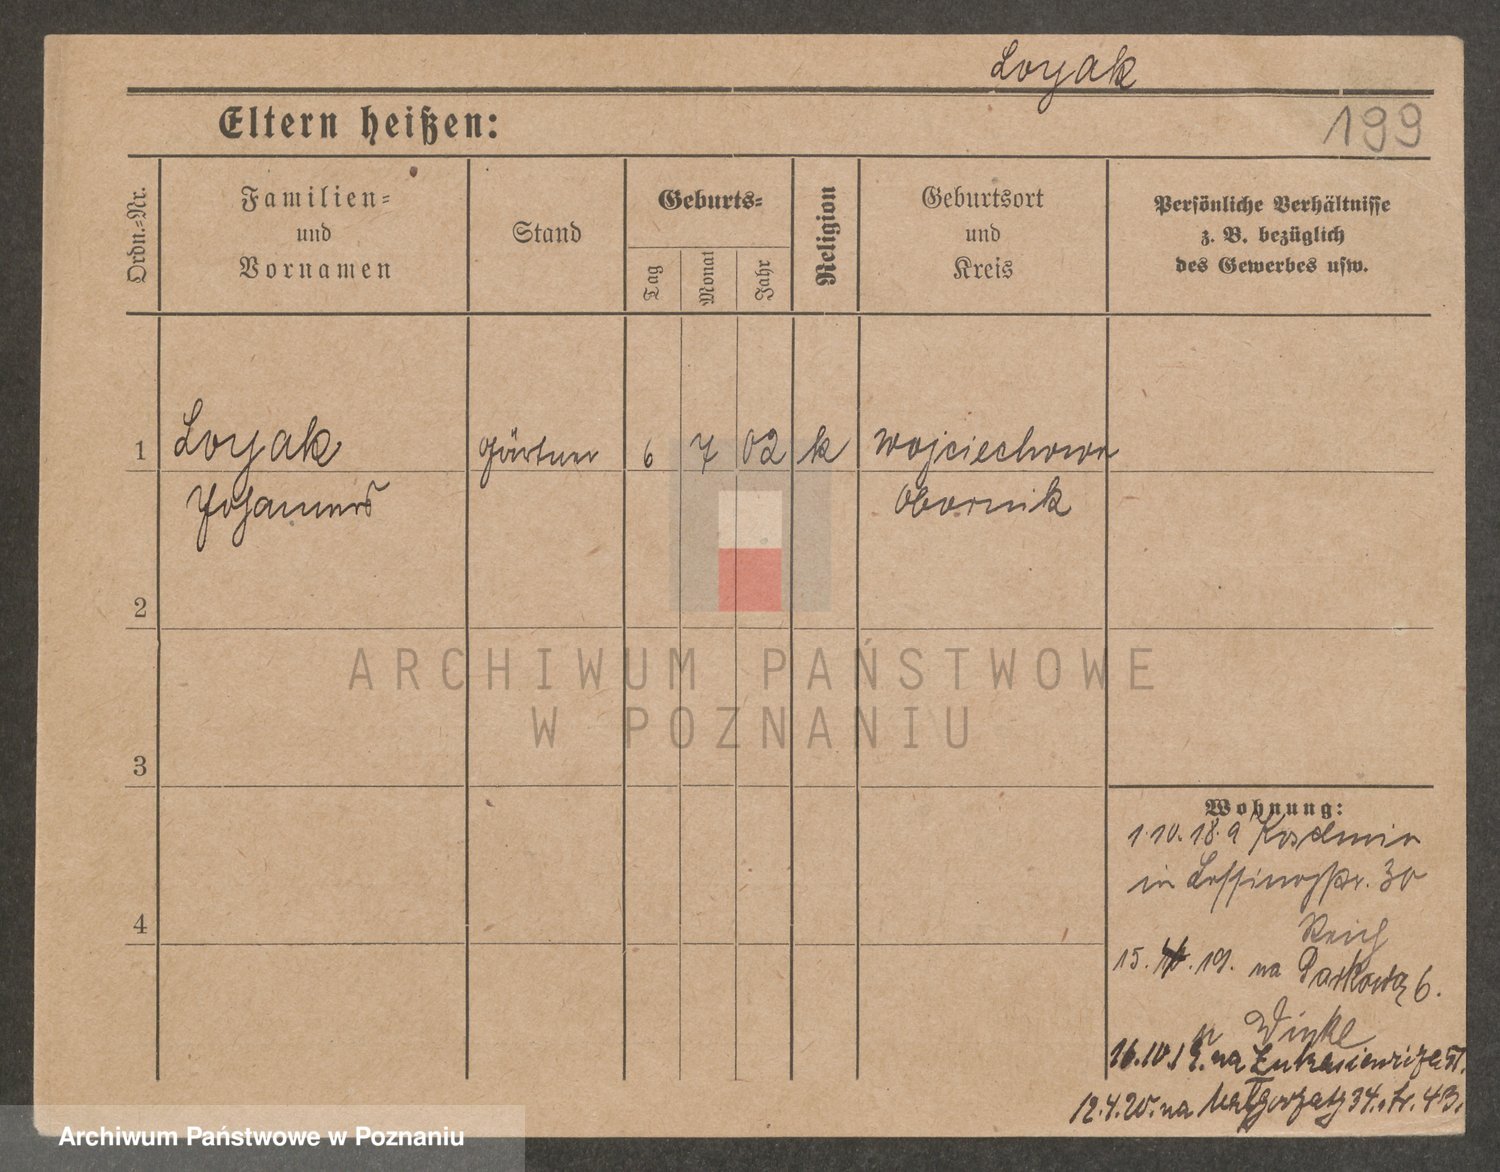 Loyak
199
Eltern heißen:
Ordn.=Nr.
Familien=
und
Vornamen
Stand
Geburts=
Tag
Monat
Jahr
Religion
Geburtsort
und
Kreis
Persönliche Verhältnisse
z. B. bezüglich
des Gewerbes usw.
1
Loyak
Johannes
Gärtner
6
7
02
k
Wojciechowo
Obornik
2
3
4
Wohnung:
1.10.18. a
in Lessingstr. 30
15. . 19. na Parkową 6.
16.10.19. na
12.4.20. na Małgorzaty 34.
ARCHIWUM PAŃSTWOWE
W POZNANIU
Archiwum Państwowe w Poznaniu